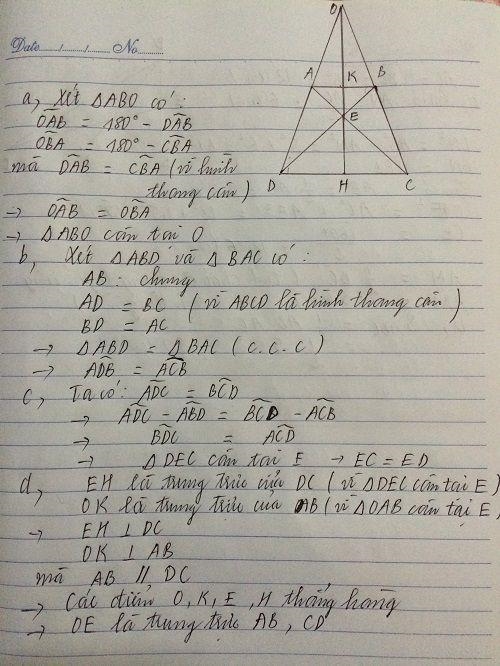 Date / / No
O
A K B
E
D H C
a, Xét ΔABO có:
OAB = 180° - DAB
OBA = 180° - CBA
mà DAB = CBA (vì hình
thang cân)
→ OAB = OBA
→ ΔABO cân tại O
b, Xét ΔABD và ΔBAC có:
AB: chung
AD = BC (vì ABCD là hình thang cân)
BD = AC
→ ΔABD = ΔBAC (c.c.c)
→ ADB = ACB
c, Ta có: ADC = BCD
→ ADC - ABD = BCD - ACB
→ BDC = ACD
→ ΔDEC cân tại E → EC = ED
d, EH là trung trực của DC (vì ΔDEC cân tại E)
OK là trung trực của AB (vì ΔOAB cân tại E)
→ EH ⊥ DC
OK ⊥ AB
mà AB // DC
→ Các điểm O, K, E, H thẳng hàng
→ OE là trung trực AB, CD